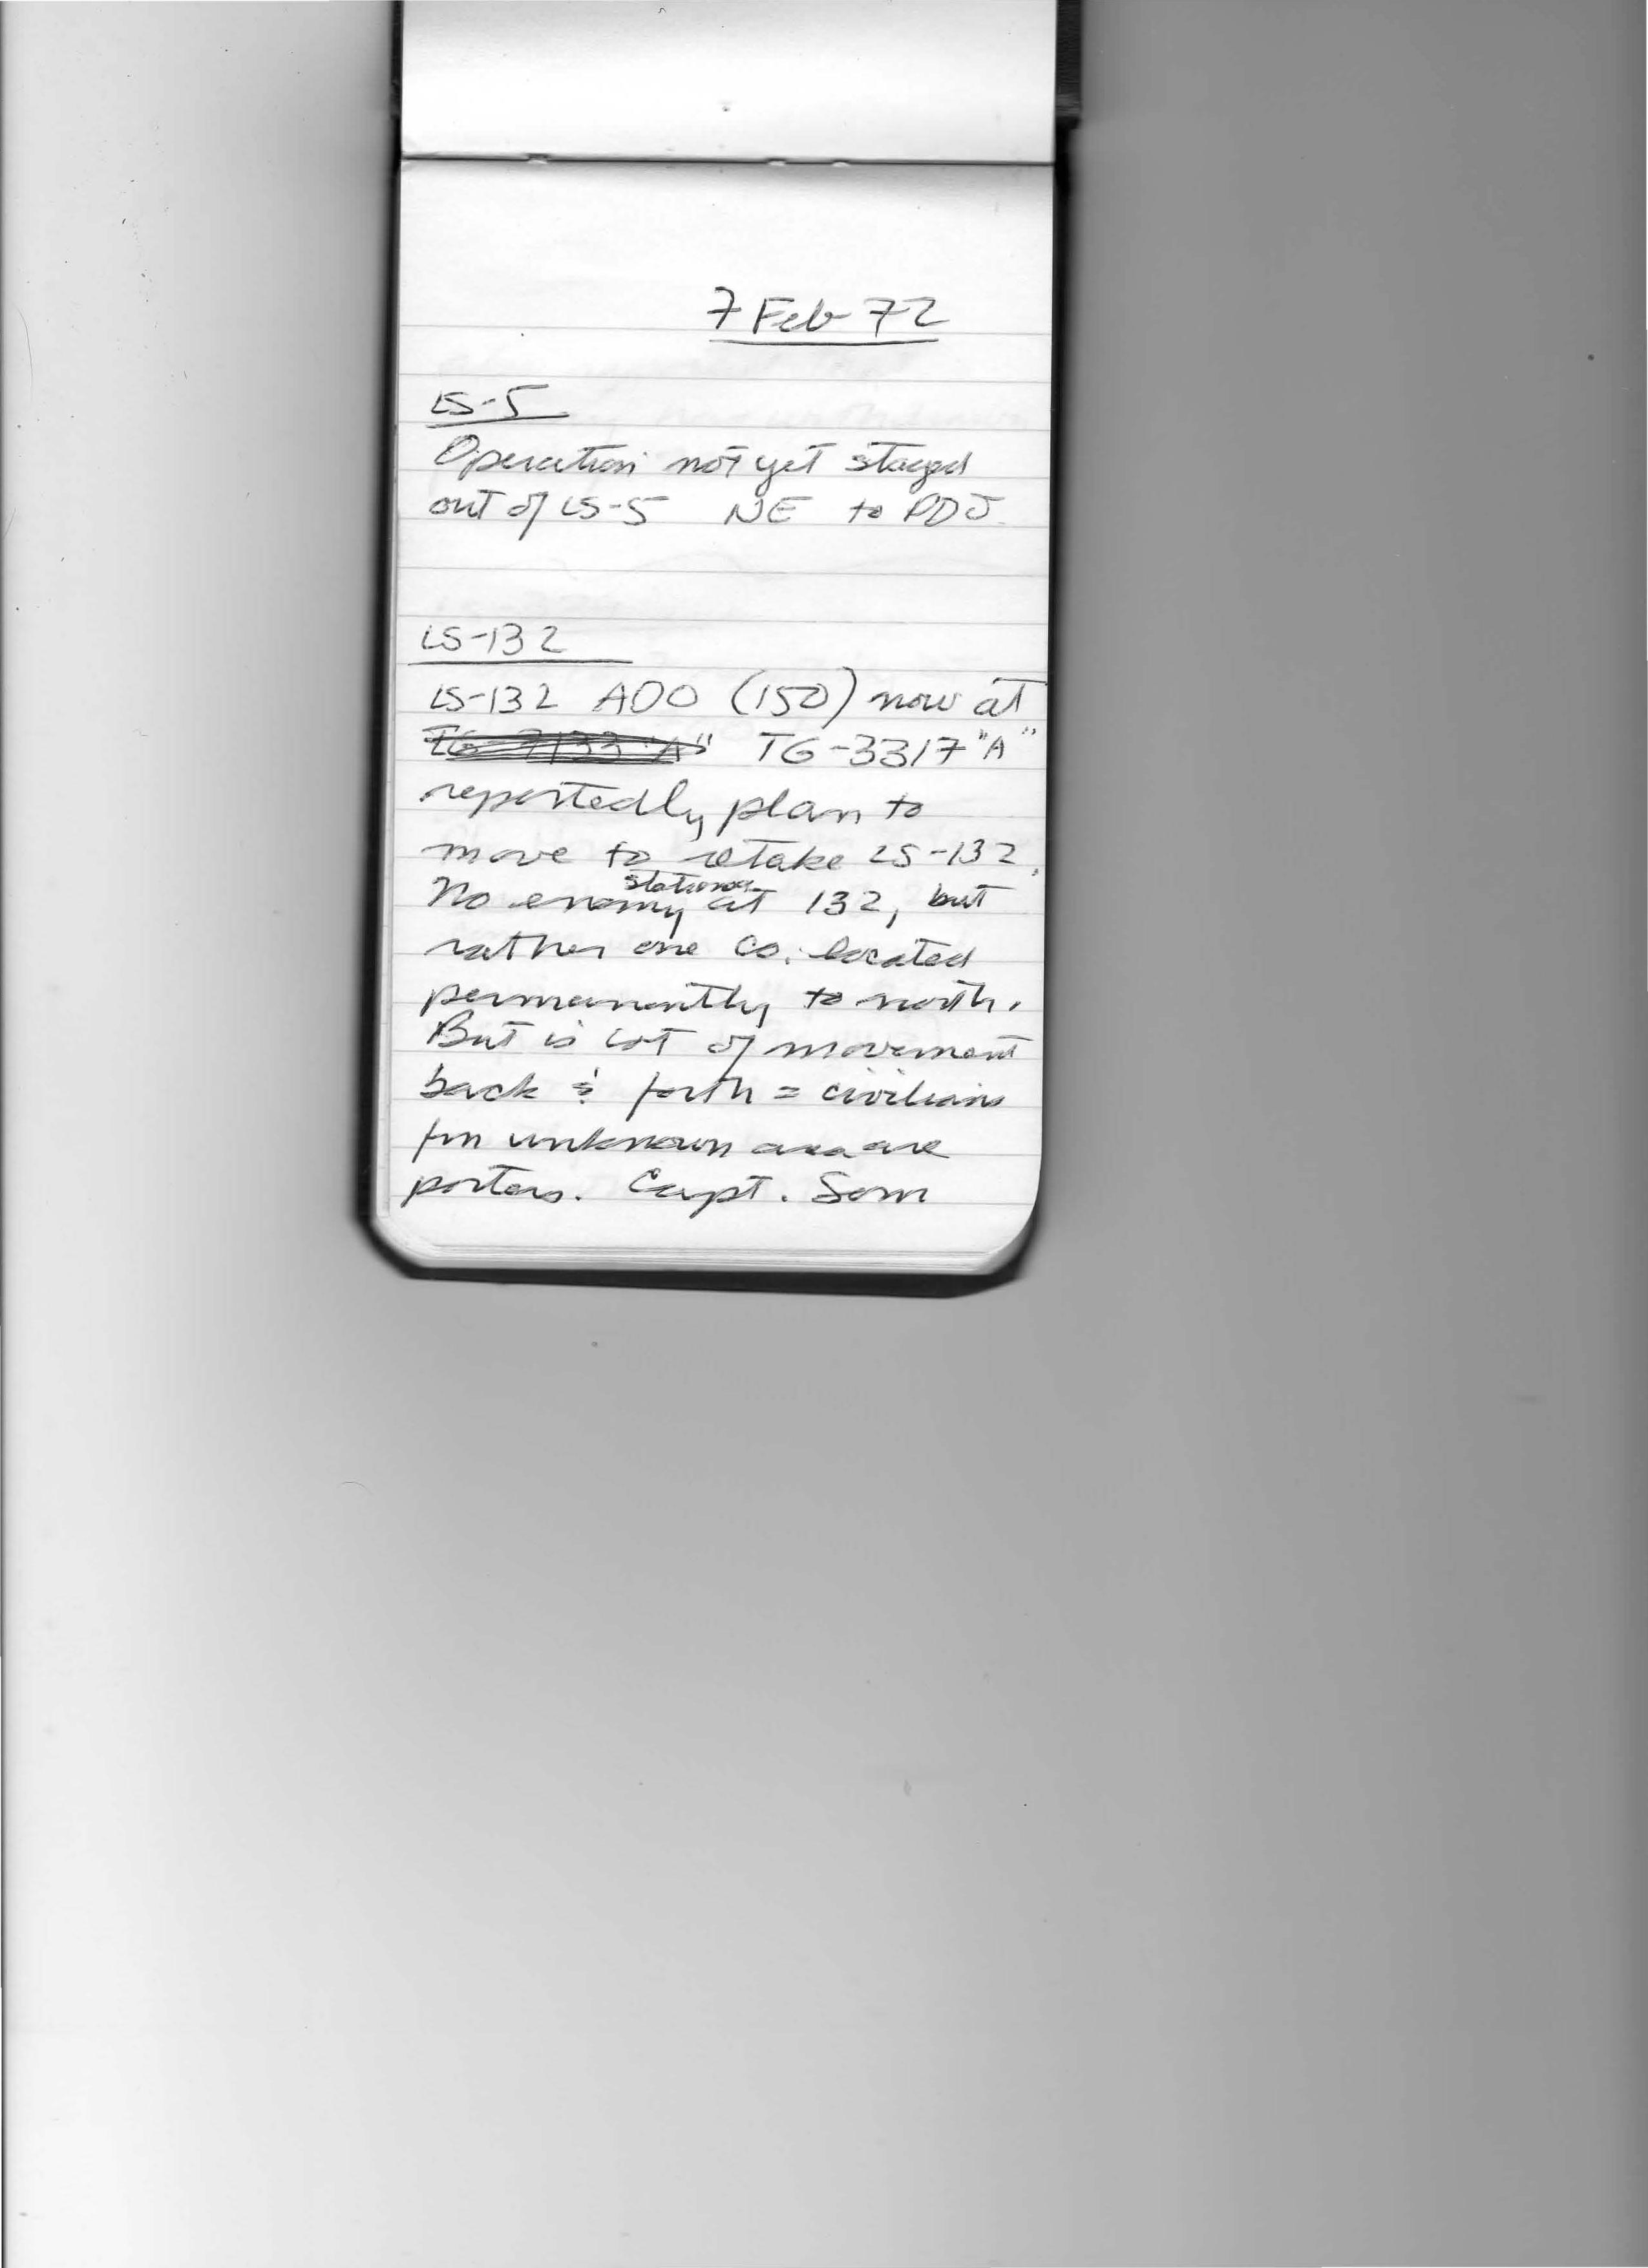 7 Feb 72
LS-5
Operation not yet staged
out of LS-5 NE to PDJ.
LS-132
LS-132 ADO (150) now at
TG-3317 "A"
reportedly plan to
move to retake LS-132.
No enemy stationed at 132, but
rather one co. located
permanently to north.
But is lot of movement
back & forth = civilians
fm unknown area are
porters. Capt. Som